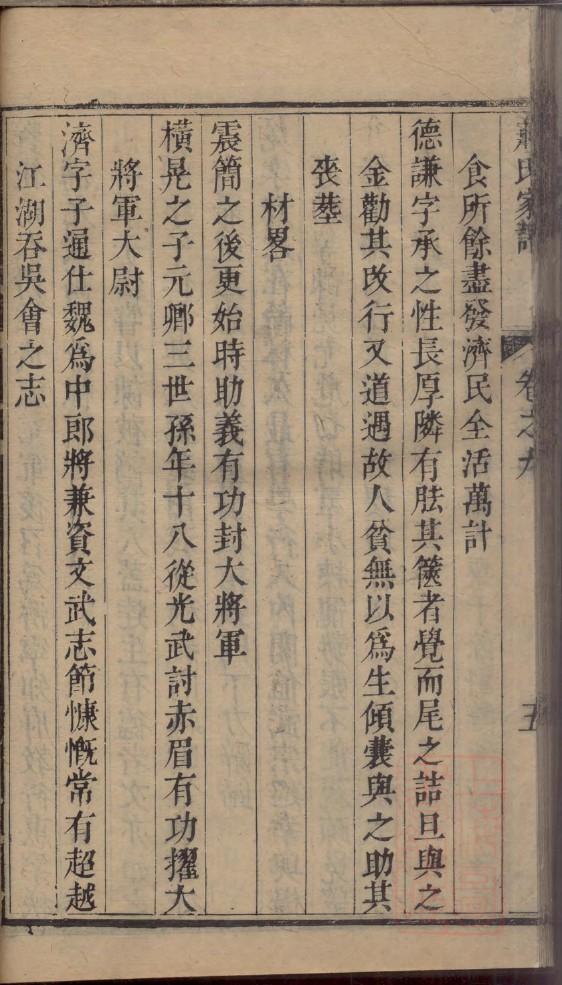 蔣氏家譜 卷之九 五
食所餘盡發濟民全活萬計
德謙字承之性長厚隣有胠其篋者覺而尾之詰旦與之
金勸其改行又道遇故人貧無以爲生傾囊與之助其
喪塟
材畧
震簡之後更始時助義有功封大將軍
橫晃之子元卿三世孫年十八從光武討赤眉有功擢大
將軍大尉
濟字子通仕魏爲中郎將兼資文武志節慷慨常有超越
江湖吞吳會之志